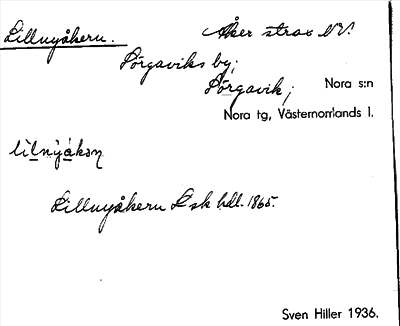 Lillnyåkern. Åker strax NV.
Sörgaviks by;
Sörgavik; Nora s:n
Nora tg, Västernorrlands l.
lìlnyákən
Lillnyåkern Lsk hdl. 1865.
Sven Hiller 1936.